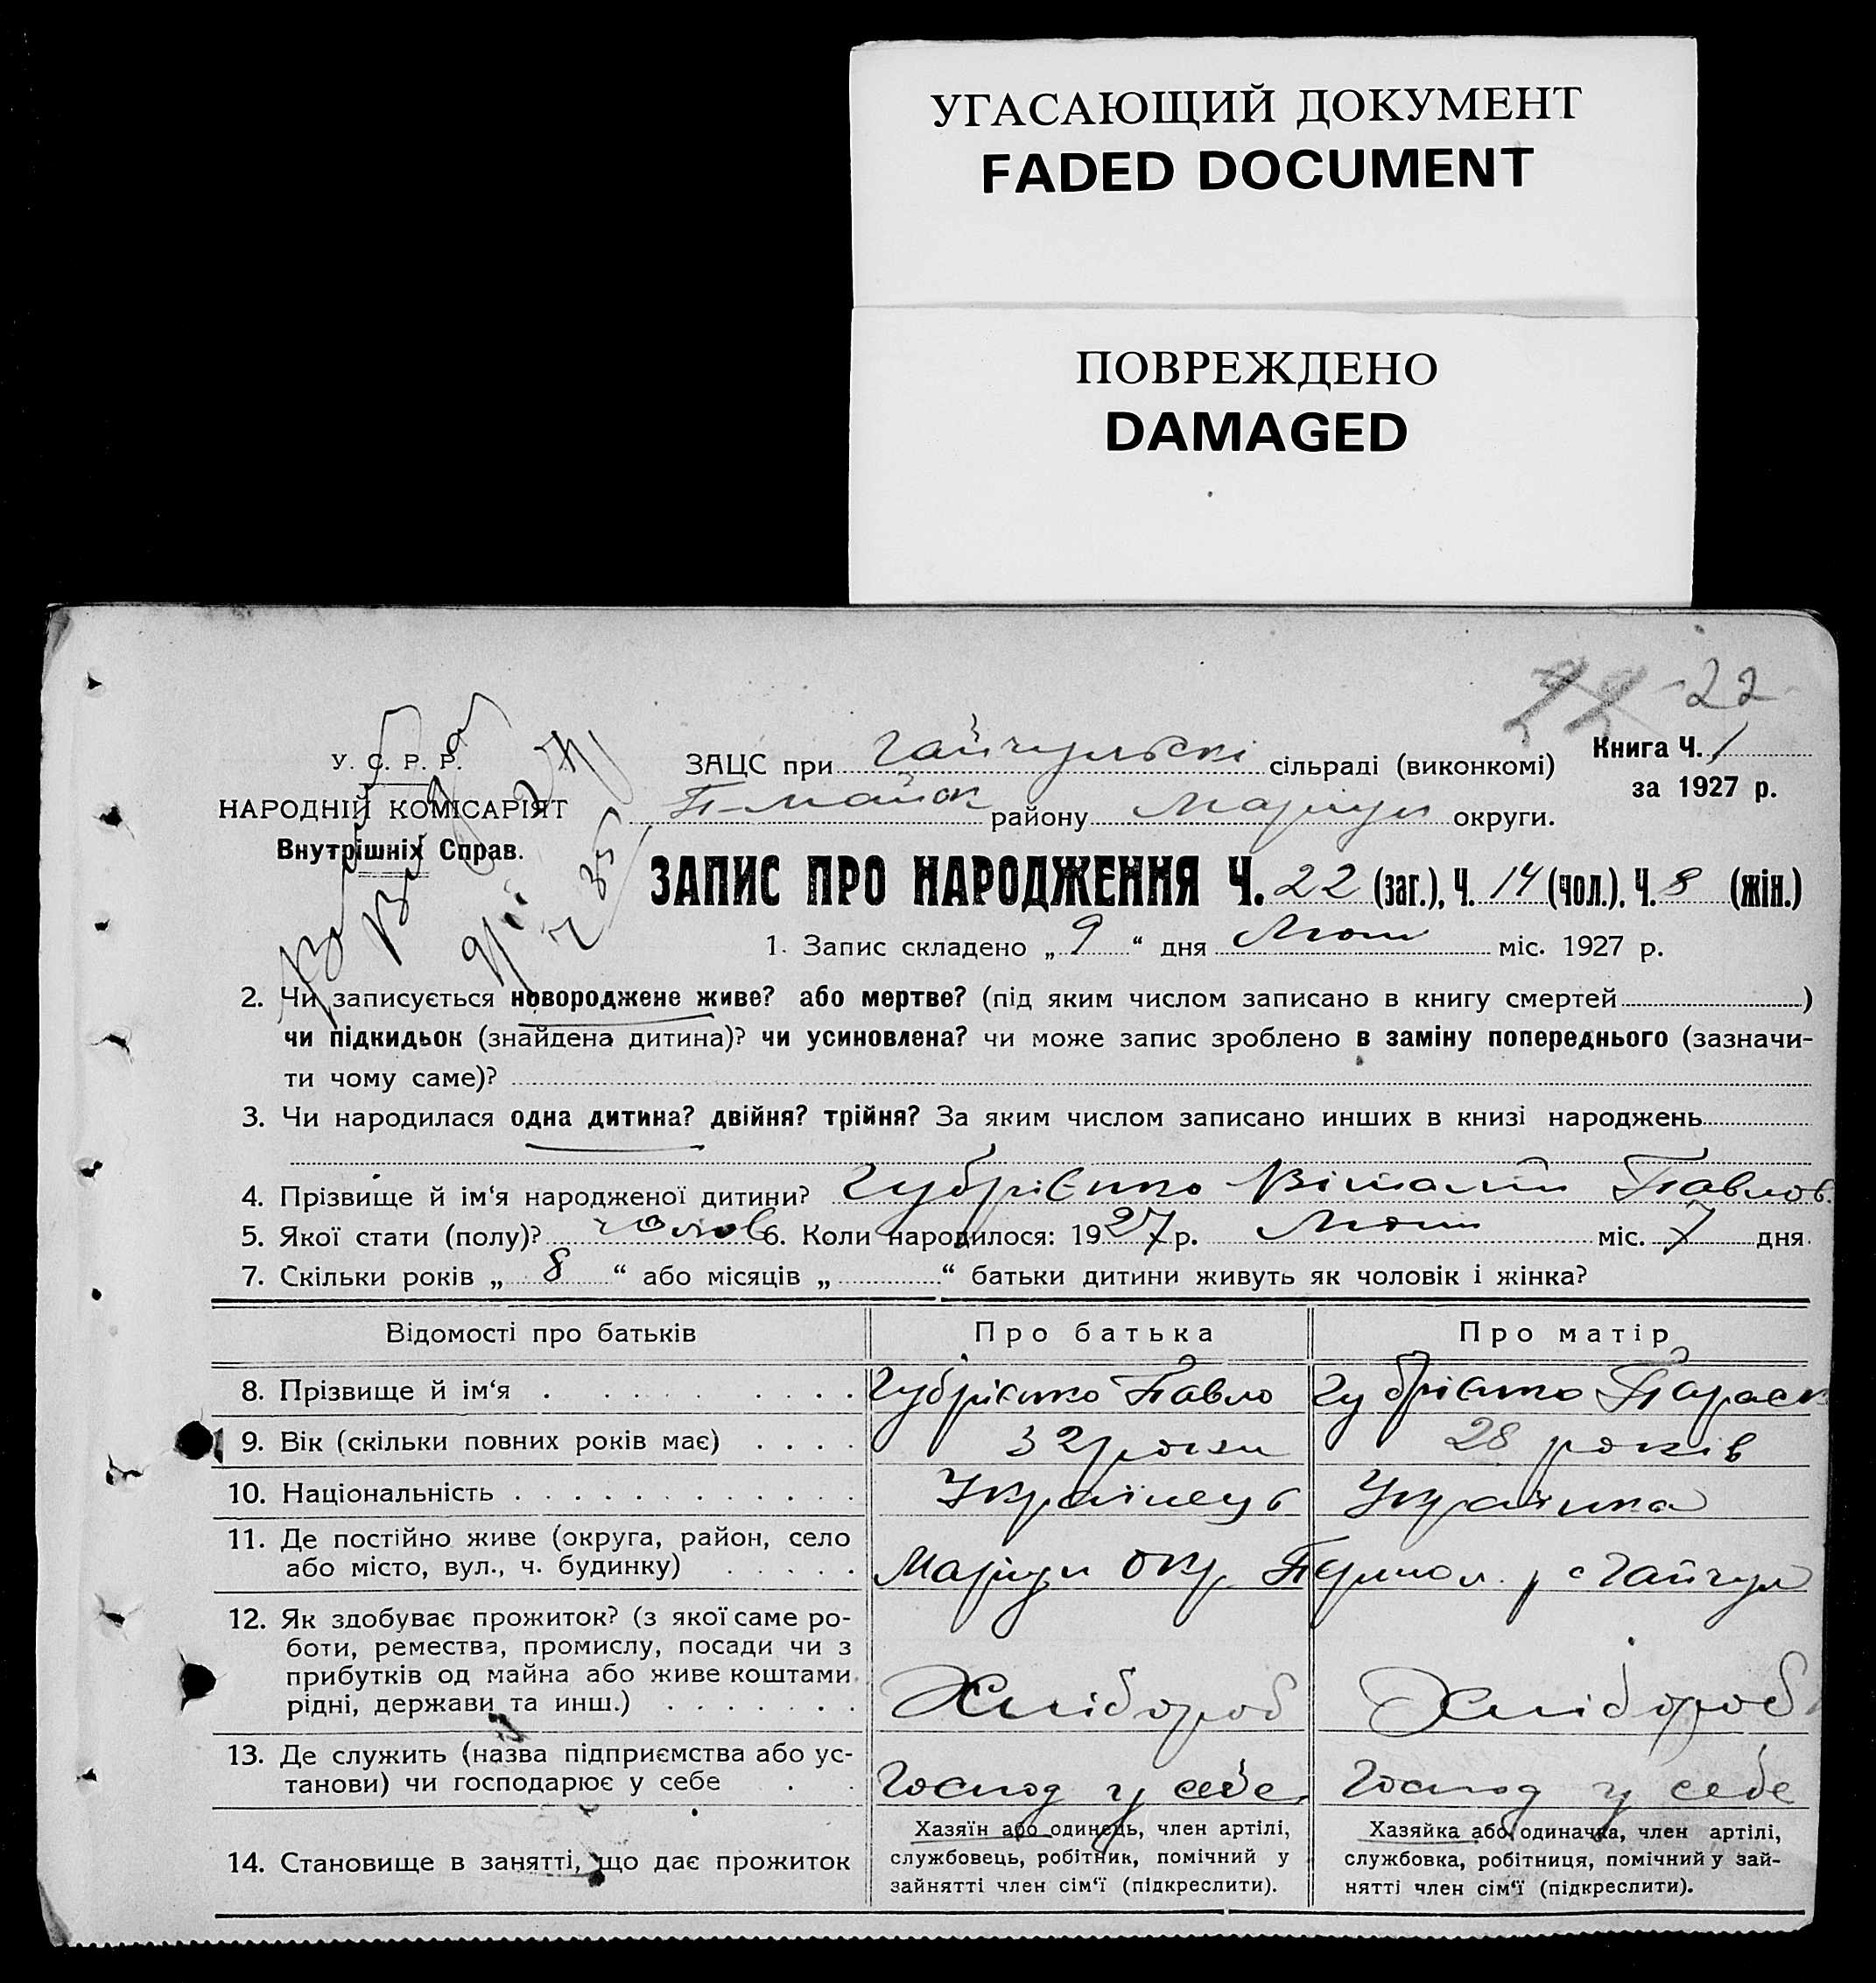 УГАСАЮЩИЙ ДОКУМЕНТ
FADED DOCUMENT
ПОВРЕЖДЕНО
DAMAGED
22 - 22
У. С. Р. Р.
НАРОДНІЙ КОМІСАРІЯТ
Внутрішніх Справ.
ЗАЦС при Гайчульскі сільраді (виконкомі)
Книга Ч. 1
за 1927 р.
П-Майск району Маріуп округи.
ЗАПИС ПРО НАРОДЖЕННЯ Ч. 22 (заг.), Ч. 14 (чол.). Ч. 8 (жін.)
1. Запис складено „ 9 “ дня Лют міс. 1927 р.
2. Чи записується новороджене живе? або мертве? (під яким числом записано в книгу смертей )
чи підкидьок (знайдена дитина)? чи усиновлена? чи може запис зроблено в заміну попереднього (зазначи-
ти чому саме)?
3. Чи народилася одна дитина? двійня? трійня? За яким числом записано инших в книзі народжень
4. Прізвище й ім‘я народженої дитини? Губрієнко Віталій Павлов.
5. Якої стати (полу)? чолов 6. Коли народилося: 1927 р. Лют міс. 7 дня
7. Скільки років „ 8 “ або місяців „ “ батьки дитини живуть як чоловік і жінка?
Відомості про батьків Про батька Про матір
8. Прізвище й ім‘я Губрієнко Павло Губрієнко Параск
9. Вік (скільки повних років має) 32 роки 28 років
10. Національність Українець Українка
11. Де постійно живе (округа, район, село
або місто, вул., ч. будинку) Маріуп окр. р с Гайчул
12. Як здобуває прожиток? (з якої саме ро-
боти, ремества, промислу, посади чи з
прибутків од майна або живе коштами
рідні, держави та инш.) Хлібороб Хлібороб
13. Де служить (назва підприємства або ус-
танови) чи господарює у себе Господ у себе Господ у себе
14. Становище в занятті, що дає прожиток
Хазяїн або одинець, член артілі,
службовець, робітник, помічний у
зайнятті член сім‘ї (підкреслити).
Хазяйка або одиначка, член артілі,
службовка, робітниця, помічний у зай-
нятті член сім‘ї (підкреслити).